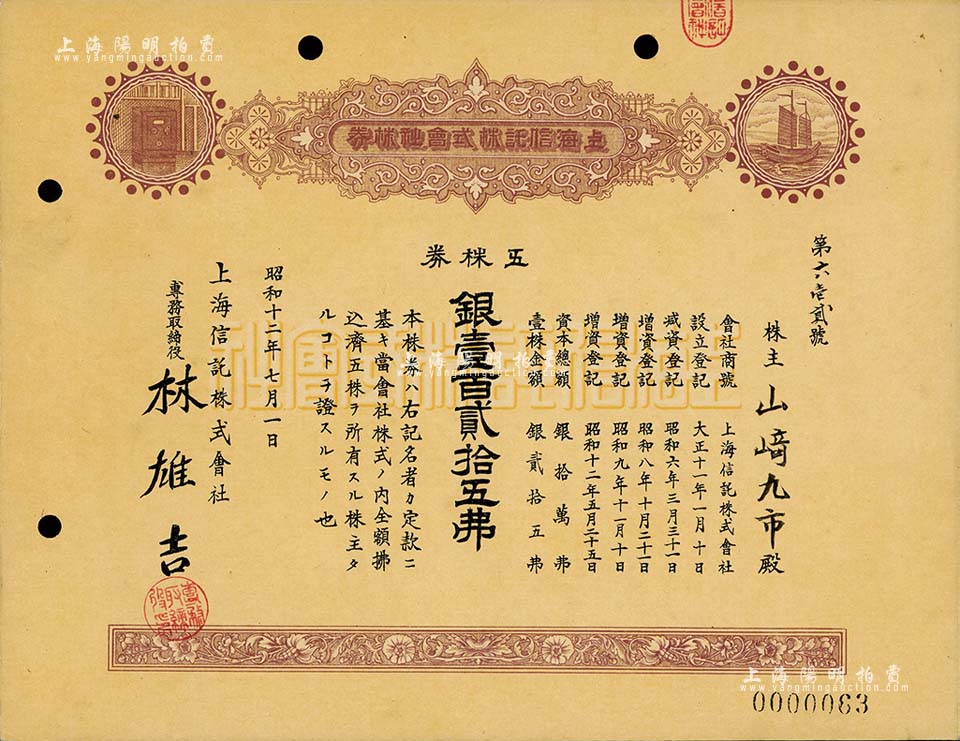 上海陽明拍賣
www.yangmingauction.com
上海信託株式會社株券
第六壹貳號
株主 山﨑九市殿
五株券
會社商號 上海信託株式會社
設立登記 大正十一年一月十日
減資登記 昭和六年三月三十一日
增資登記 昭和八年十月二十一日
增資登記 昭和九年十一月十日
增資登記 昭和十二年五月二十五日
資本總額 銀拾萬弗
壹株金額 銀貳拾五弗
銀壹百貳拾五弗
本株券ハ右記名者カ定款ニ
基キ當會社株式ノ內全額拂
込濟五株ヲ所有スル株主タ
ルコトヲ證スルモノ也
昭和十二年七月一日
上海信託株式會社
專務取締役 林雄吉
上海信託株式會社
上海陽明拍賣
www.yangmingauction.com
上海陽明拍賣
www.yangmingauction.com
0000063